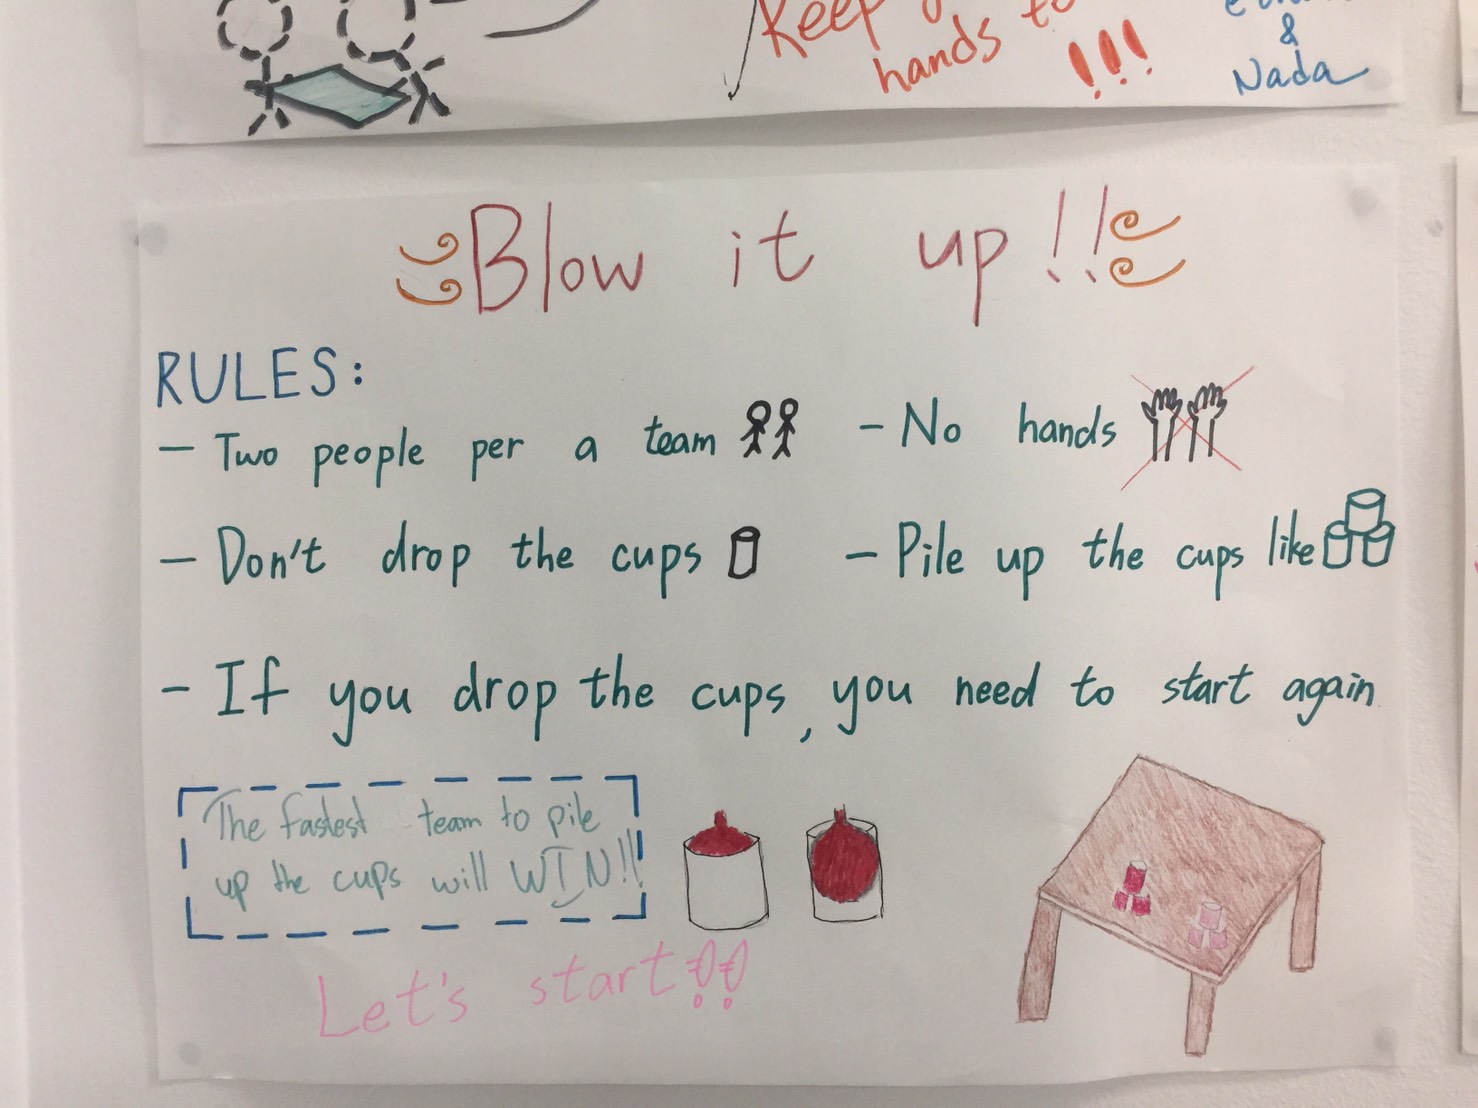 Keep
hands to
!!!
&
Nada
Blow it up!!
RULES:
- Two people per a team
- No hands
- Don't drop the cups
- Pile up the cups like
- If you drop the cups, you need to start again
The fastest team to pile
up the cups will WIN!!
Let's start!!